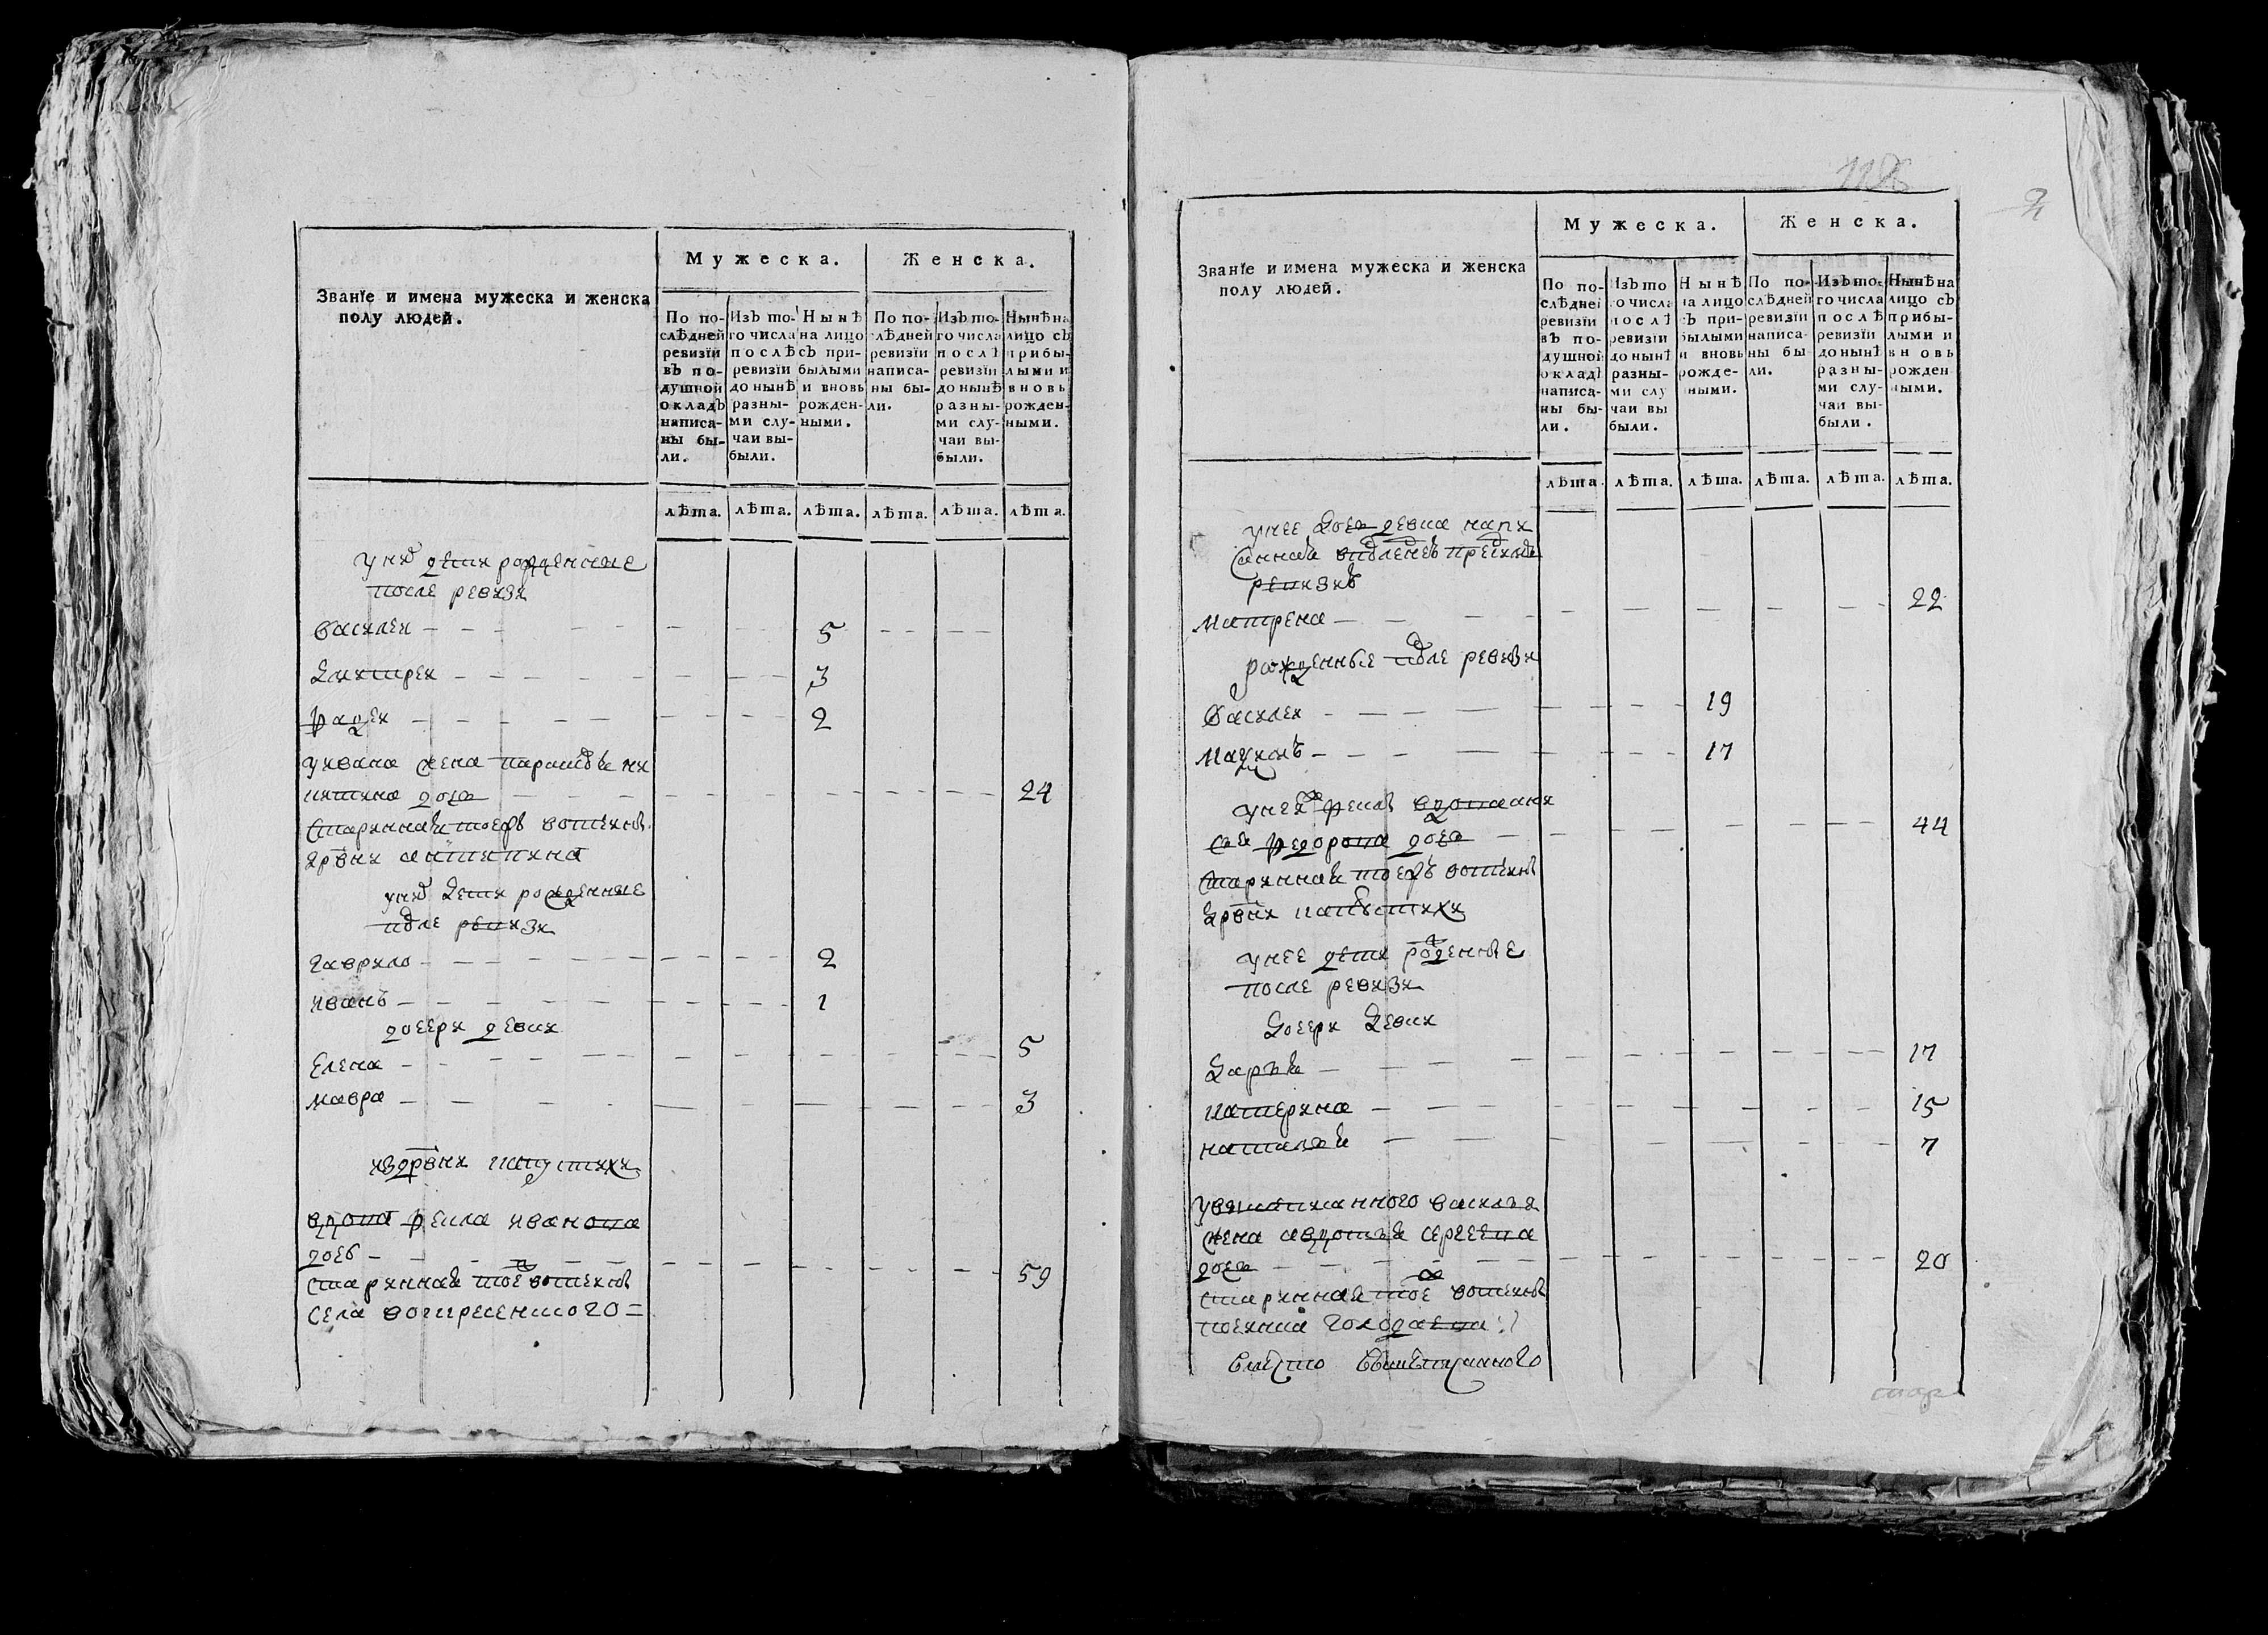 Званїе и имена мужеска и женска
полу людей.
Мужеска.
Женска.
По по-
слѣдней
ревизїи
въ по-
душной
окладъ
написа-
ны бы-
ли.
Изъ то-
го числа
послѣ
ревизїи
до нынѣ
разны-
ми слу-
чаи вы-
были.
Нынѣ
на лицо
съ при-
былыми
и вновь
рожден-
ными.
По по-
слѣдней
ревизїи
написа-
ны бы-
ли.
Изъ то-
го числа
послѣ
ревизїи
до нынѣ
разны-
ми слу-
чаи вы-
были.
Нынѣ на
лицо съ
прибы-
лыми и
вновь
рожден-
ными.
лѣта. лѣта. лѣта. лѣта. лѣта. лѣта.
у них дети рожденные
после ревизи
василеи 5
дмитреи 3
фадеи 2
у ивана жена парасковья ни
китина дочь 24
старинная тоеж вотчины
дрвни
у них дети рожденные
после ревизи
гаврило 2
иванъ 1
дочери девки
елена 5
мавра 3
издрвни капустихи
вдова фекла иванова
дочь 59
старинная тоеж вотчины
села воскресенского =
118
Званїе и имена мужеска и женска
полу людей.
Мужеска.
Женска.
По по-
слѣдней
ревизїи
въ по-
душной
окладъ
написа-
ны бы-
ли.
Изъ то
го числа
послѣ
ревизїи
до нынѣ
разны-
ми слу
чаи вы
были.
Нынѣ
на лицо
съ при-
былыми
и вновь
рожде-
ными.
По по-
слѣдней
ревизїи
написа-
ны бы-
ли.
Изъ то-
го числа
послѣ
ревизїи
до нынѣ
разны-
ми слу-
чаи вы-
были.
Нынѣ на
лицо съ
прибы-
лыми и
вновь
рожден
ными.
лѣта. лѣта. лѣта. лѣта. лѣта. лѣта.
у нее дочь девка напи
санная
ревизиѣ
матрена 22
рожденные после ревизи
василеи 19
17
федорова дочь 44
старинная тоежъ вотчины
дрвни капустихи
у нее дети рожденые
после ревизи
дочери девки
дарья 17
катерина 15
наталья 7
у вышеписанного василья
жена авдотья сергеева
дочь 20
старинная тоеж вотчины
починка
вместо вышеписанного